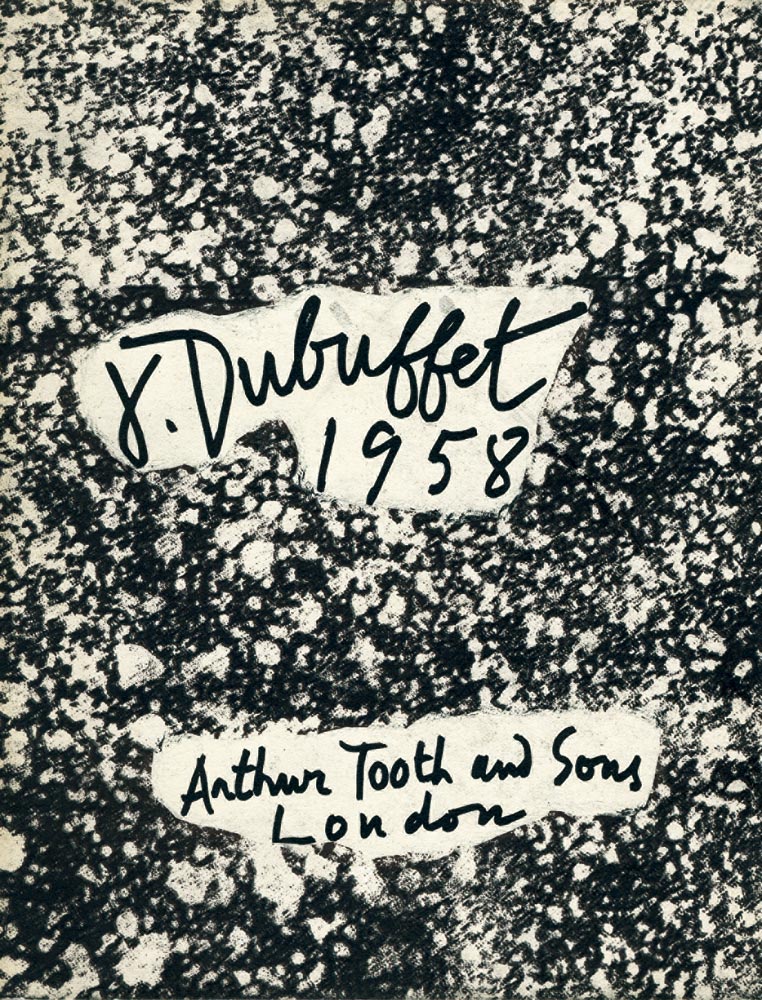 J. Dubuffet
1958
Arthur Tooth and Sons
London